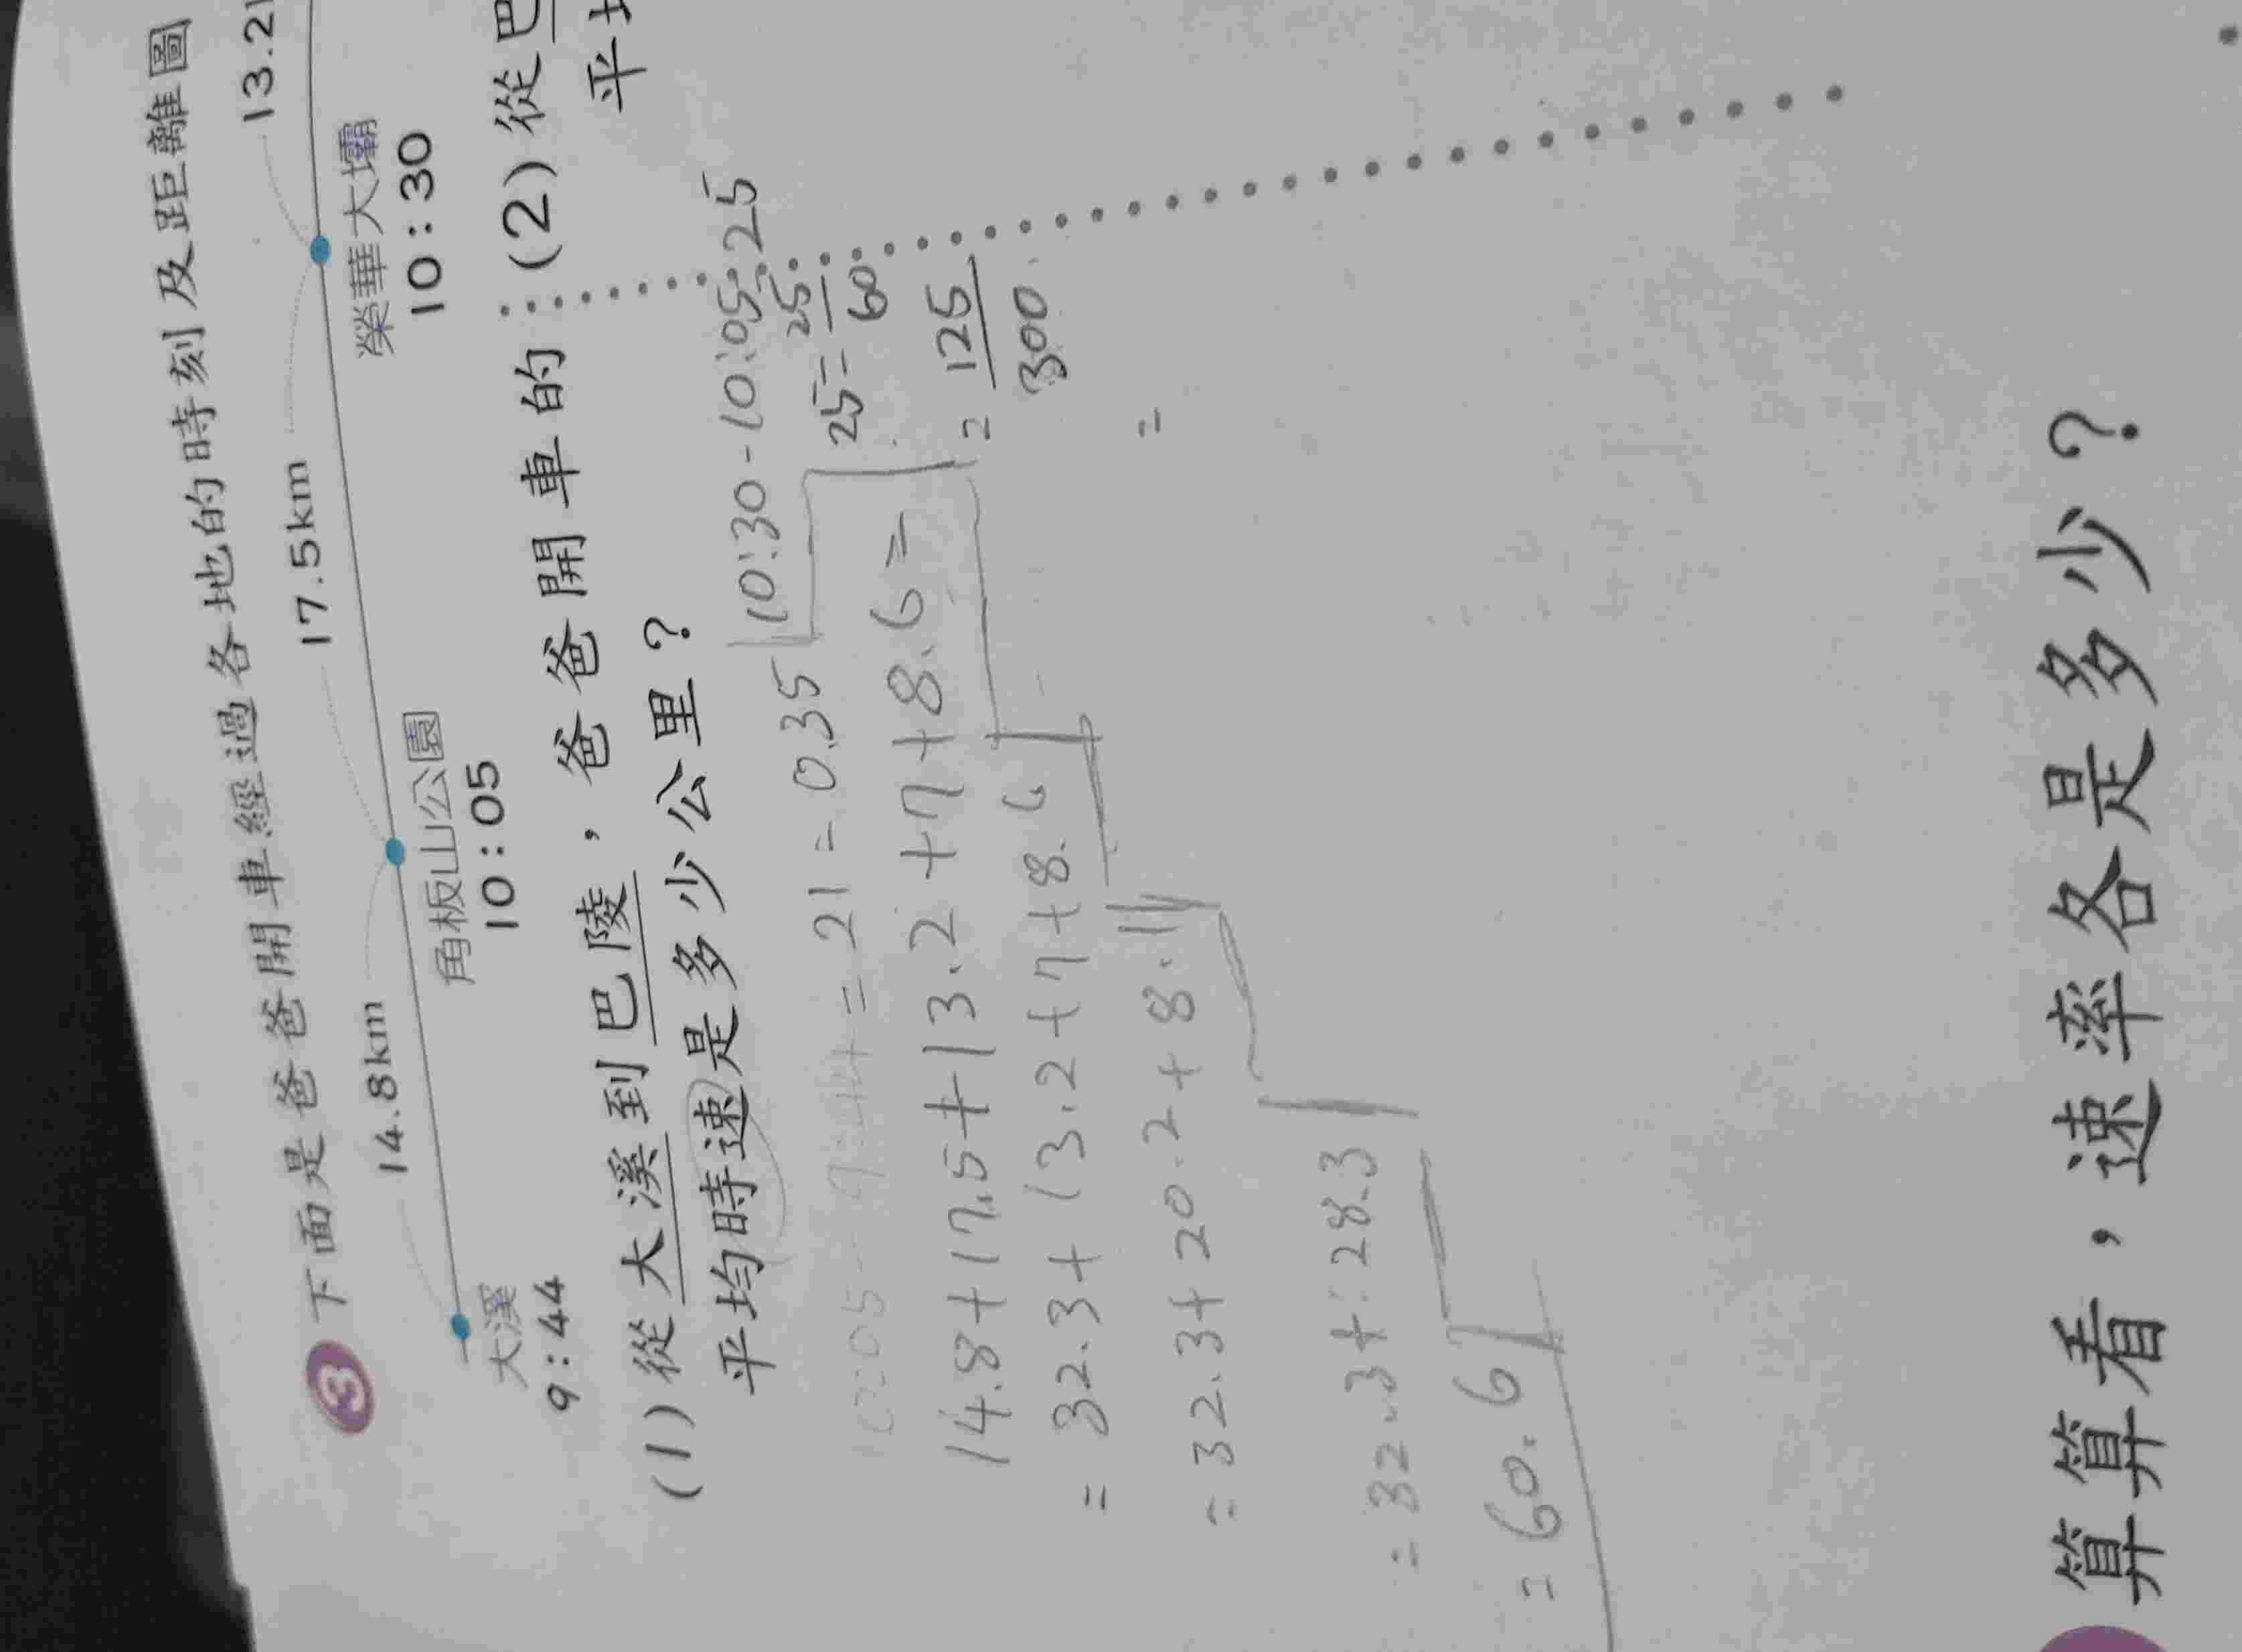 ③下面是爸爸開車經過各地的時刻及距離圖
14.8km 17.5km 13.2
大溪 角板山公園 榮華大壩
9:44 10:05 10:30
(1)從大溪到巴陵，爸爸開車的
平均時速是多少公里？
(2)從巴
平均
10:05-9:44=21=0.35
10:30-10:05=25
25=25/60
=125/300
=
14.8+17.5+13.2+7+8.6=
=32.3+13.2+7+8.6
=32.3+20.2+8.1
=32.3+28.3
=60.6
算算看，速率各是多少？